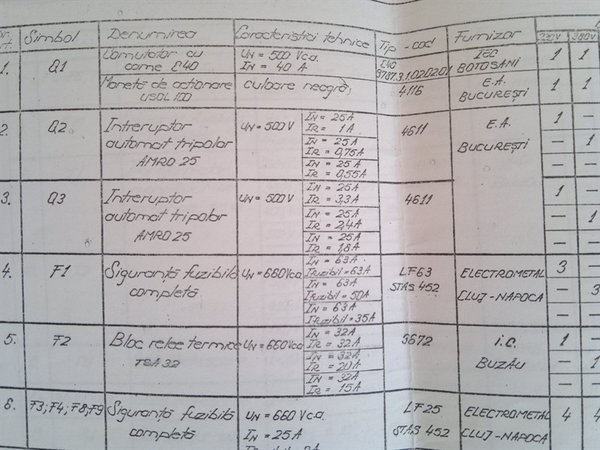 Nr. crt. Simbol Denumirea Caracteristici tehnice Tip-cod Furnizor 220V 380V
1. Q1 Comutator cu came C40 UN = 500 Vca. IN = 40 A C40 IEC BOTOSANI 1 1
Manetă de acționare culoare neagră 4116 E.A. BUCUREȘTI 1 1
2. Q2 Intreruptor automat tripolar AMRO 25 UN = 500 V 4611 E.A. BUCUREȘTI
IN = 25 A IR = 1 A 1 —
IN = 25 A IR = 0,75 A
IN = 25 A IR = 0,55 A
3. Q3 Intreruptor automat tripolar AMRO 25 UN = 500 V 4611
IN = 25 A IR = 3,3 A 1 —
IN = 25 A IR = 2,4 A — 1
IN = 25 A IR = 1,8 A — —
4. F1 Siguranță fuzibilă completă UN = 660 Vca. LF 63 STAS 452 ELECTROMETAL CLUJ-NAPOCA
IN = 63 A Ifuzibil = 63 A 3 —
IN = 63 A Ifuzibil = 50 A — 3
IN = 63 A Ifuzibil = 35 A — —
5. F2 Bloc relee termice TSA 32 UN = 660 Vca. 3672 I.C. BUZĂU
IN = 32 A IR = 32 A 1 —
IN = 32 A IR = 20 A — 1
IN = 32 A IR = 15 A — —
6. F3; F4; F8; F9 Siguranță fuzibilă completă UN = 660 Vca. IN = 25 A LF 25 STAS 452 ELECTROMETAL CLUJ-NAPOCA 4 4